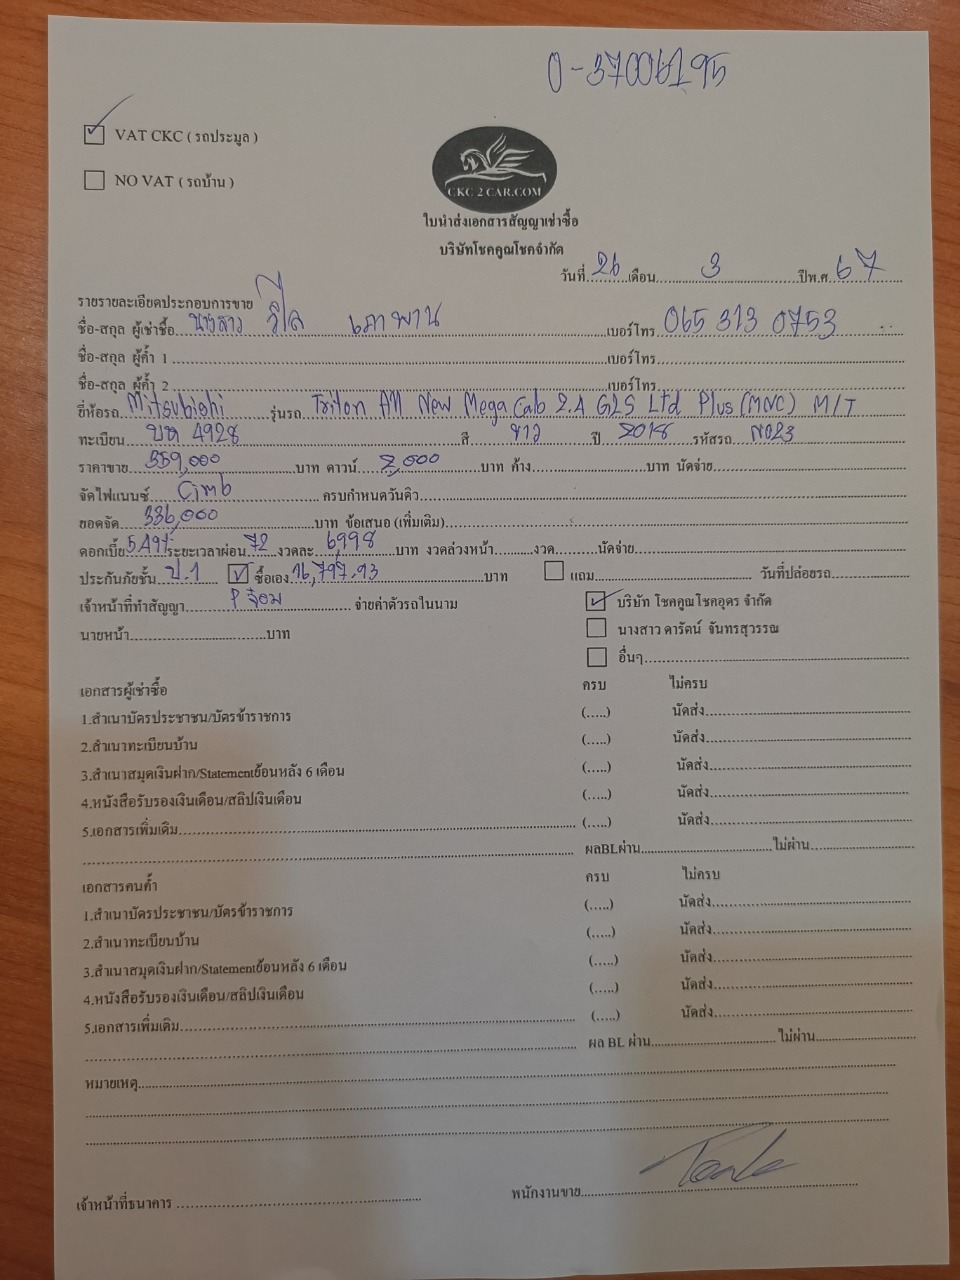 0-37006195
VAT CKC ( รถประมูล )
NO VAT ( รถบ้าน )
CKC 2 CAR.COM
ใบนำส่งเอกสารสัญญาเช่าซื้อ
บริษัทโชคคูณโชคจำกัด
วันที่ 26 เดือน 3 ปีพ.ศ. 67
รายรายละเอียดประกอบการขาย
ชื่อ-สกุล ผู้เช่าซื้อ นางสาว วิไล เภาพาน เบอร์โทร 065 313 0753
ชื่อ-สกุล ผู้ค้ำ 1 เบอร์โทร
ชื่อ-สกุล ผู้ค้ำ 2 เบอร์โทร
ยี่ห้อรถ Mitsubishi รุ่นรถ Triton All New Mega Cab 2.4 GLS Ltd Plus (MNC) M/T
ทะเบียน บห 4928 สี ขาว ปี 2018 รหัสรถ N023
ราคาขาย 359,000 บาท ดาวน์ 2,000 บาท ค้าง บาท นัดจ่าย
จัดไฟแนนซ์ Cimb ครบกำหนดวันดิว
ยอดจัด 336,000 บาท ข้อเสนอ (เพิ่มเติม)
ดอกเบี้ย 5.49% ระยะเวลาผ่อน 72 งวดละ 6998 บาท งวดล่วงหน้า งวด นัดจ่าย
ประกันภัยชั้น ป.1 ซื้อเอง 16,797.93 บาท แถม วันที่ปล่อยรถ
เจ้าหน้าที่ทำสัญญา P จ๋อม จ่ายค่าตัวรถในนาม บริษัท โชคคูณโชคอุดร จำกัด
นายหน้า บาท นางสาว ดารัตน์ จันทรสุวรรณ
อื่นๆ
เอกสารผู้เช่าซื้อ ครบ ไม่ครบ
1.สำเนาบัตรประชาชน/บัตรข้าราชการ (.....) นัดส่ง
2.สำเนาทะเบียนบ้าน (.....) นัดส่ง
3.สำเนาสมุดเงินฝาก/Statementย้อนหลัง 6 เดือน (.....) นัดส่ง
4.หนังสือรับรองเงินเดือน/สลิปเงินเดือน (.....) นัดส่ง
5.เอกสารเพิ่มเติม (.....) นัดส่ง
ผลBLผ่าน ไม่ผ่าน
เอกสารคนค้ำ ครบ ไม่ครบ
1.สำเนาบัตรประชาชน/บัตรข้าราชการ (.....) นัดส่ง
2.สำเนาทะเบียนบ้าน (.....) นัดส่ง
3.สำเนาสมุดเงินฝาก/Statementย้อนหลัง 6 เดือน (.....) นัดส่ง
4.หนังสือรับรองเงินเดือน/สลิปเงินเดือน (.....) นัดส่ง
5.เอกสารเพิ่มเติม (.....) นัดส่ง
ผล BL ผ่าน ไม่ผ่าน
หมายเหตุ
เจ้าหน้าที่ธนาคาร พนักงานขาย